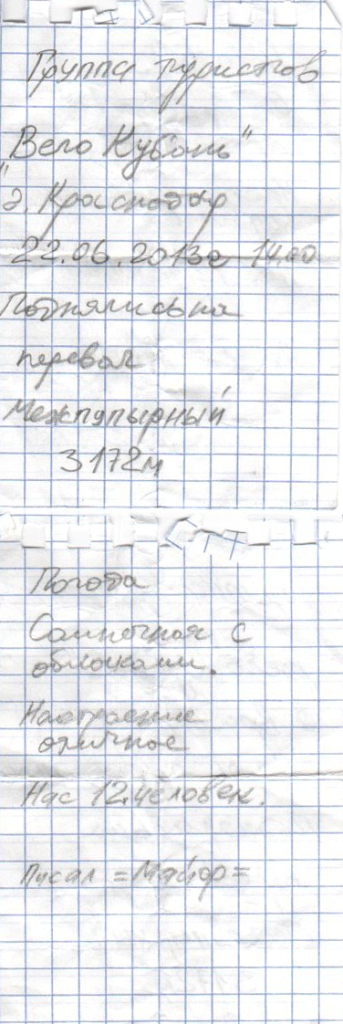 Группа туристов
"Вело Кубань"
г. Краснодар
22.06.2013г 14.00
Поднялись на
перевал
Межпупырный
3172м
Погода
Солнечная с
облаками.
Настроение
отличное
Нас 12 человек.
Писал =Майор=